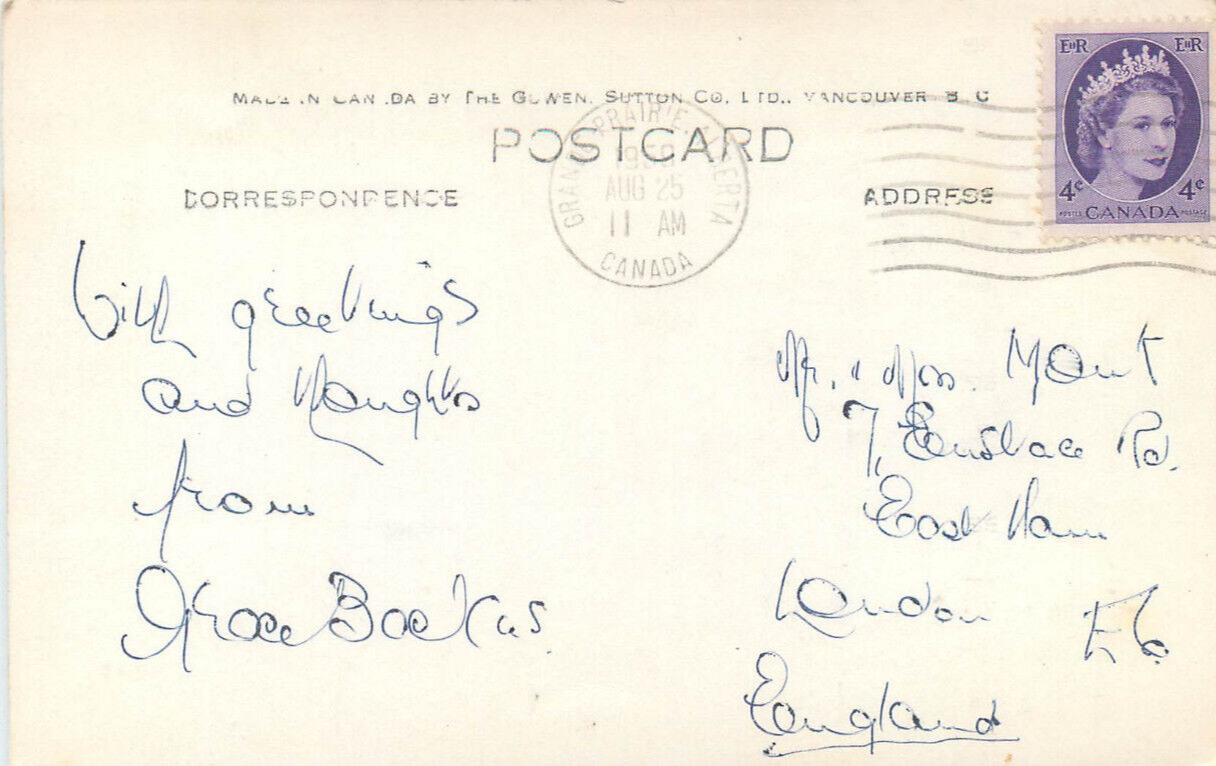 MADE IN CANADA BY THE GOWEN, SUTTON CO. LTD., VANCOUVER B C
POSTCARD
CORRESPONDENCE
ADDRESS
GRANDE PRAIRIE ALBERTA
AUG 25
11 AM
CANADA
EIIR EIIR
4¢ 4¢
POSTES CANADA POSTAGE
With greetings
and thoughts
from
Grace Backus.
Mr. & Mrs. Mant
7, Eustace Rd.
East Ham
London E6.
England